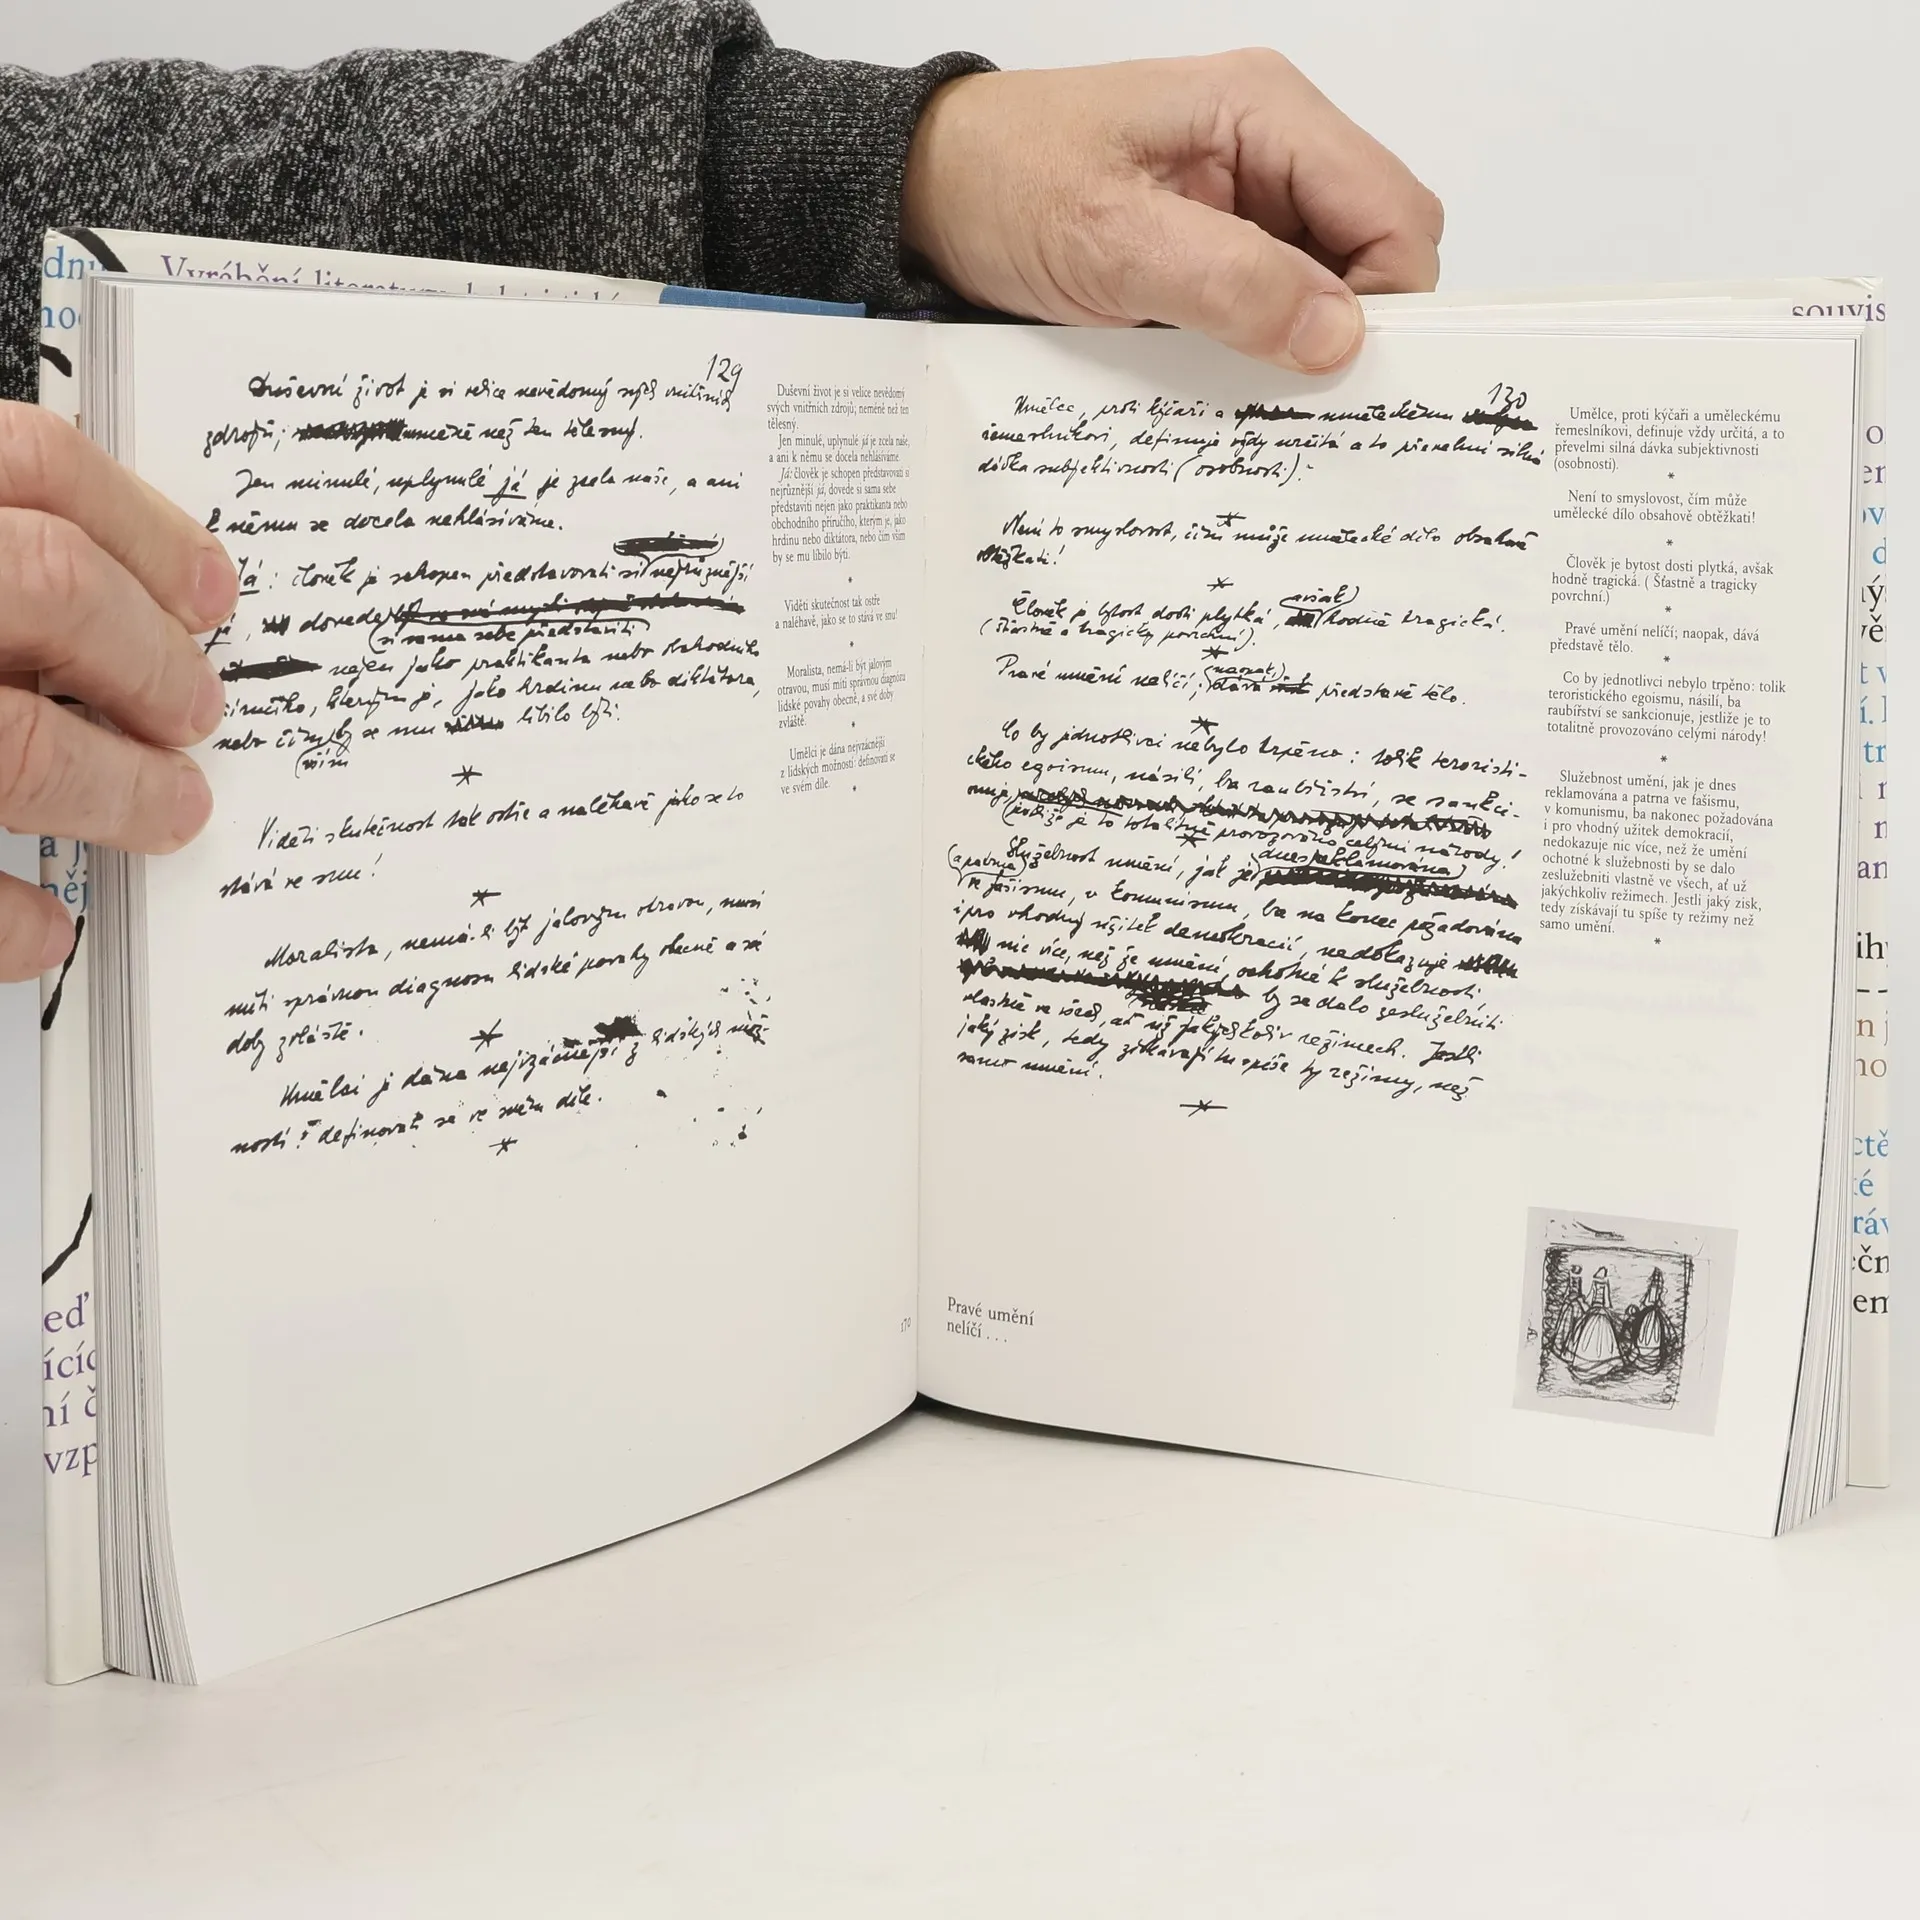 Vyrábění literatury
souvis
129
Duševní život je si velice nevědomý svých vnitřních
zdrojů; neméně než ten tělesný.
Jen minulé, uplynulé já je zcela naše, a ani
k němu se docela nehlásíváme.
Já: člověk je schopen představovati si nejrůznější
já, dovede
si sama sebe představiti
nejen jako praktikanta nebo obchodního
příručího, kterým je, jako hrdinu nebo diktátora,
nebo čím by se mu líbilo býti.
vším
*
Viděti skutečnost tak ostře a naléhavě jako se to
stává ve snu!
*
Moralista, nemá-li být jalovým otravou, musí
míti správnou diagnosu lidské povahy obecně a své
doby zvláště.
*
Umělci je dána nejvzácnější z lidských mož-
ností: definovati se ve svém díle.
*
Duševní život je si velice nevědomý
svých vnitřních zdrojů; neméně než ten
tělesný.
Jen minulé, uplynulé já je zcela naše,
a ani k němu se docela nehlásíváme.
Já: člověk je schopen představovati si
nejrůznější já, dovede si sama sebe
představiti nejen jako praktikanta nebo
obchodního příručího, kterým je, jako
hrdinu nebo diktátora, nebo čím vším
by se mu líbilo býti.
*
Viděti skutečnost tak ostře
a naléhavě, jako se to stává ve snu!
*
Moralista, nemá-li být jalovým
otravou, musí míti správnou diagnózu
lidské povahy obecně, a své doby
zvláště.
*
Umělci je dána nejvzácnější
z lidských možností: definovati se
ve svém díle.
*
170
130
Umělce, proti kýčaři a uměleckému
řemeslníkovi, definuje vždy určitá a to převelmi silná
dávka subjektivnosti (osobnosti).
*
Není to smyslovost, čím může umělecké dílo obsahově
obtěžkati!
*
avšak
Člověk je bytost dosti plytká, hodně tragická.
(šťastně a tragicky povrchní).
*
naopak,
Pravé umění nelíčí; dává představě tělo.
*
Co by jednotlivci nebylo trpěno: tolik teroristi-
ckého egoismu, násilí, ba raubířství, se sankci-
onuje,
jestliže je to totalitně provozováno celými národy!
*
dnes reklamována
Služebnost umění, jak je
a patrna
ve fašismu, v komunismu, ba na konec požadována
i pro vhodný užitek demokracií, nedokazuje
nic více, než že umění, ochotné k služebnosti,
by se dalo zeslužebniti
vlastně ve všech, ať už jakýchkoliv režimech. Jestli
jaký zisk, tedy získávají tu spíše ty režimy, než
samo umění.
*
Umělce, proti kýčaři a uměleckému
řemeslníkovi, definuje vždy určitá, a to
převelmi silná dávka subjektivnosti
(osobnosti).
*
Není to smyslovost, čím může
umělecké dílo obsahově obtěžkati!
*
Člověk je bytost dosti plytká, avšak
hodně tragická. ( Šťastně a tragicky
povrchní.)
*
Pravé umění nelíčí; naopak, dává
představě tělo.
*
Co by jednotlivci nebylo trpěno: tolik
teroristického egoismu, násilí, ba
raubířství se sankcionuje, jestliže je to
totalitně provozováno celými národy!
*
Služebnost umění, jak je dnes
reklamována a patrna ve fašismu,
v komunismu, ba nakonec požadována
i pro vhodný užitek demokracií,
nedokazuje nic více, než že umění
ochotné k služebnosti by se dalo
zeslužebniti vlastně ve všech, ať už
jakýchkoliv režimech. Jestli jaký zisk,
tedy získávají tu spíše ty režimy než
samo umění.
*
Pravé umění
nelíčí . . .